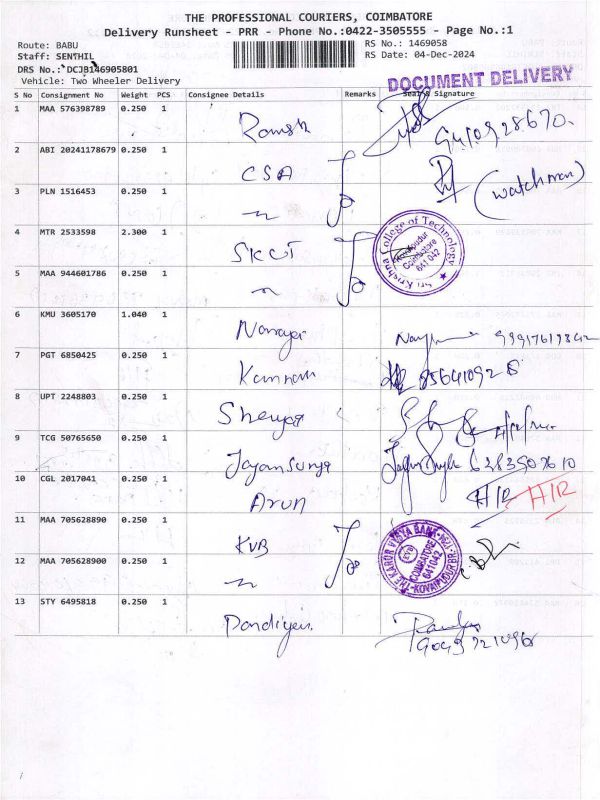 THE PROFESSIONAL COURIERS, COIMBATORE
Delivery Runsheet - PRR - Phone No.:0422-3505555 - Page No.:1
Route: BABU
RS No.: 1469058
Staff: SENTHIL
RS Date: 04-Dec-2024
DRS No.: DCJB146905801
Vehicle: Two Wheeler Delivery
DOCUMENT DELIVERY
S No Consignment No Weight PCS Consignee Details Remarks Seal & Signature
1 MAA 576398789 0.250 1 Ramesh
2 ABI 20241178679 0.250 1 CSA
3 PLN 1516453 0.250 1 (watchman)
4 MTR 2533598 2.300 1 SKCT
Sri Krishna College of Technology Kovaipudur Coimbatore 641 042
5 MAA 944601786 0.250 1
6 KMU 3605170 1.040 1
7 PGT 6850425 0.250 1
8 UPT 2248803 0.250 1
9 TCG 50765650 0.250 1 6283507610
10 CGL 2017041 0.250 1 Arun H/R H/R
11 MAA 705628890 0.250 1 KVB
THE KARUR VYSYA BANK LTD. KOVAIPUDUR BR. COIMBATORE 641042
12 MAA 705628900 0.250 1
13 STY 6495818 0.250 1